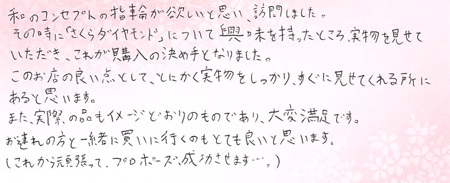 和のコンセプトの指輪が欲しいと思い、訪問しました。
その時に「さくらダイヤモンド」について興味を持ったところ、実物を見せて
いただき、これが購入の決め手となりました。
このお店の良い点として、とにかく実物をしっかり、すぐに見せてくれる所に
あると思います。
また、実際の品もイメージどおりのものであり、大変満足です。
お連れの方と一緒に買いに行くのもとても良いと思います。
(これから頑張って、プロポーズ、成功させます…。)